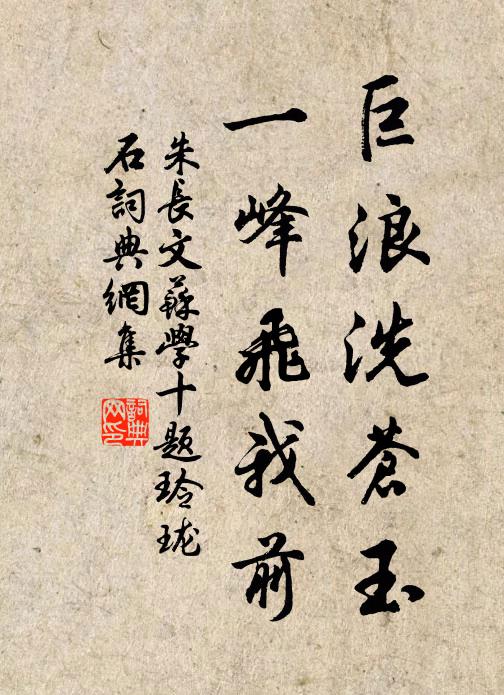 巨浪洗蒼玉
一峰飛我前
朱長文蘇學十题玲珑
石詞典網集
詞典网印